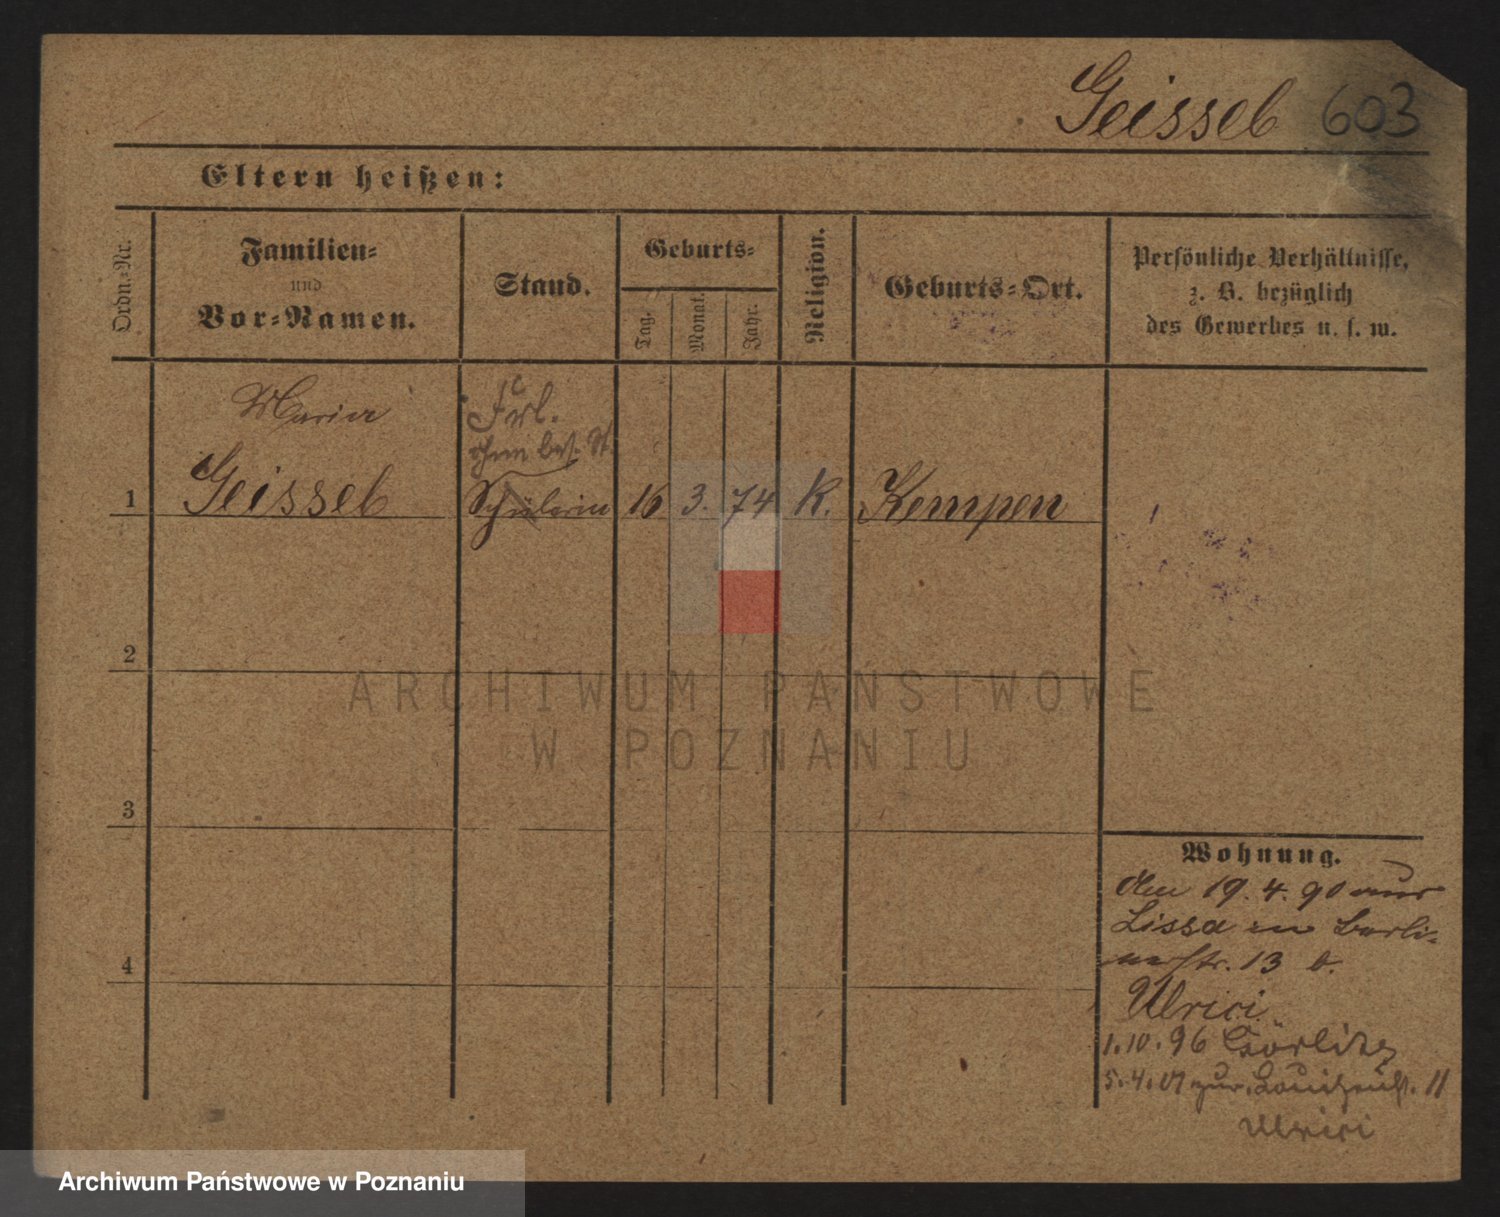 Geisseb 603
Eltern heißen:
Ordn.-Nr.
Familien-
und
Vor-Namen.
Stand.
Geburts-
Tag.
Monat.
Jahr.
Religion.
Geburts-Ort.
Persönliche Verhältnisse,
z. B. bezüglich
des Gewerbes u. s. w.
Maria
Frl.
ohne bes. St.
1 Geisseb Schülerin 16 3. 74 K. Kempen
2
3
4
Wohnung.
den 19.4.90 aus
Lissa in Berli-
nerstr. 13 b.
Ulrici
1.10.96 Görlitz
5.4.01 zur. 11
Ulrici
ARCHIWUM PAŃSTWOWE
W POZNANIU
Archiwum Państwowe w Poznaniu